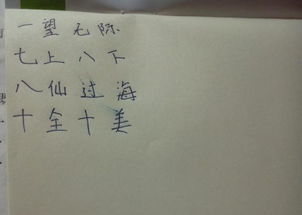 一望无际
七上八下
八仙过海
十全十美